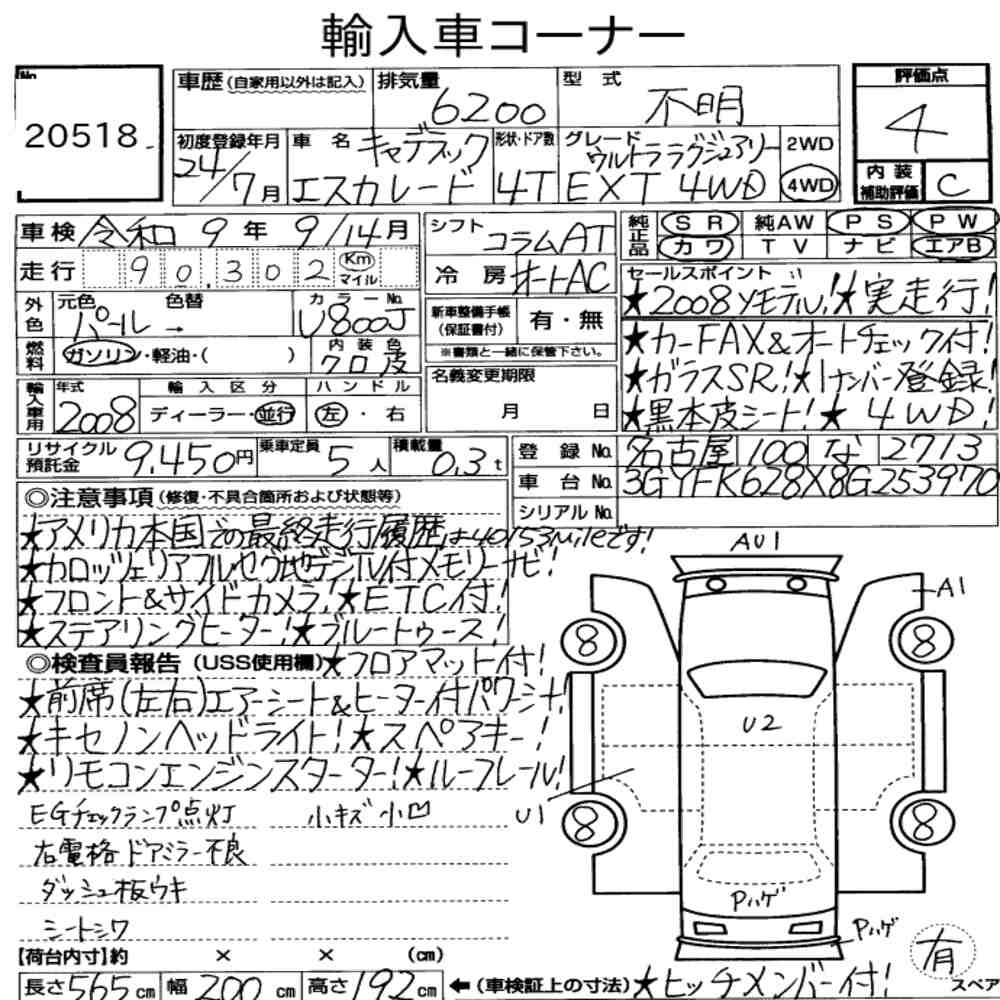 輸入車コーナー
No. 20518
車歴(自家用以外は記入) 排気量 6200 型式 不明
初度登録年月 24/7月 車名 キャデラック エスカレード 形状・ドア数 4T グレード ウルトララグジュアリー EXT 4WD 2WD 4WD
評価点 4
内装補助評価 C
車検 令和 9年 9/14月
走行 90,302 Km マイル
シフト コラムAT
冷房 オートAC
純正品 SR 純AW PS PW
カワ TV ナビ エアB
外色 元色 パール → 色替 カラーNo. U800J
燃料 ガソリン・軽油・( ) 内装色 クロ皮
新車整備手帳(保証書付) 有・無
※書類と一緒に保管下さい。
セールスポイント
★2008yモデル!★実走行!
★カーFAX&オートチェック付!
★ガラスSR!★1ナンバー登録!
★黒本皮シート!★4WD!
輸入車用 年式 2008 輸入区分 ディーラー・並行 ハンドル 左・右
名義変更期限 月 日
リサイクル預託金 9,450円 乗車定員 5人 積載量 0.3t
登録No. 名古屋 100 な 2713
車台No. 3GYFK628X8G253970
シリアルNo.
◎注意事項(修復・不具合箇所および状態等)
★アメリカ本国での最終走行履歴は40153mileです!
★カロッツェリアフルセグ地デジTV付メモリーナビ!
★フロント&サイドカメラ!★ETC付!
★ステアリングヒーター!★ブルートゥース!
◎検査員報告(USS使用欄)★フロアマット付!
★前席(左右)エアーシート&ヒーター付パワーシート!
★キセノンヘッドライト!★スペアキー!
★リモコンエンジンスターター!★ルーフレール!
EGチェックランプ点灯 小キズ小凹
右電格ドアミラー不良
ダッシュ板ウキ
シートシワ
AU1
A1
8 8
U2
U1
8 8
Pハゲ
Pハゲ
有 スペア
【荷台内寸】約 × × (cm)
長さ 565cm 幅 200cm 高さ 192cm ←(車検証上の寸法)★ヒッチメンバー付!